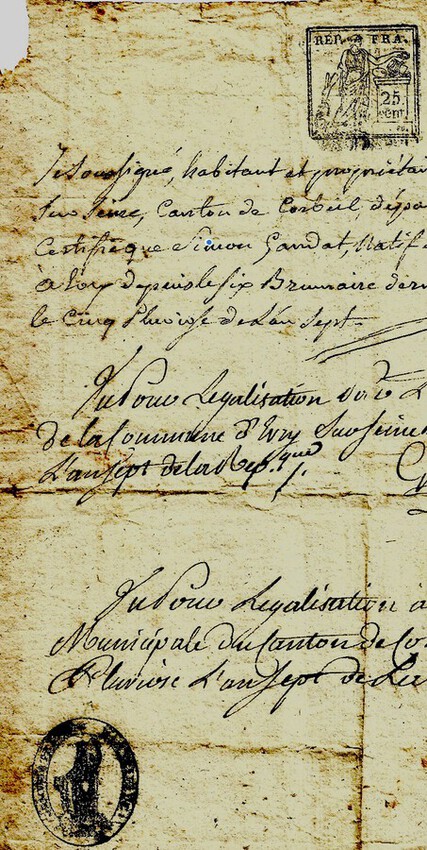 REP. FRA.
25
cent.
Je soussigné, habitant et propriétai
sur Seine, Canton de Corbeil, dépa
Certifie que Simon Gandat, Natif
depuis le six Brumaire der
le Cinq Pluviose de L'an Sept.
Vu Pour Legalisation
de la Commune d'Evry Sur Seine
L'an Sept de la Rep.que
Vu Pour Legalisation a
Municipale du Canton de Co
Pluviose L'an Sept de La